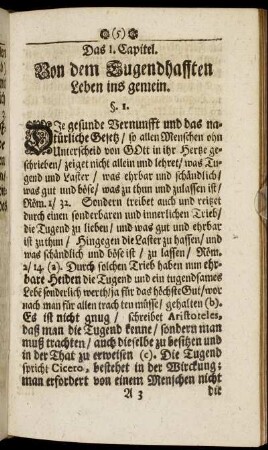 (5)
Das I. Capitel.
Von dem Tugendhafften
Leben ins gemein.
§. 1.
Die gesunde Vernunfft und das na-
türliche Gesetz/ so allen Menschen ohn
Unterscheid von GOtt in ihr Hertze ge-
schrieben/ zeiget nicht allein und lehret/ was Tu-
gend und Laster/ was ehrbar und schändlich/
was gut und böse/ was zu thun und zulassen ist/
Röm. 1/ 32. Sondern treibet auch und reitzet
durch einen sonderbaren und innerlichen Trieb/
die Tugend zu lieben/ und was gut und ehrbar
ist zu thun/ Hingegen die Laster zu hassen/ und
was schändlich und böse ist/ zu lassen/ Röm.
2/ 14 (a). Durch solchen Trieb haben nun ehr-
bare Heiden die Tugend und ein tugendsames
Lebē sonderlich werth/ ja für das höchste Gut/ wor
nach man für allen trachten müsse/ gehalten (b).
Es ist nicht gnug/ schreibet Aristoteles,
daß man die Tugend kenne/ sondern man
muß trachten/ auch dieselbe zu besitzen und
in der That zu erweisen (c). Die Tugend
spricht Cicero, bestehet in der Wirckung;
man erfordert von einem Menschen nicht
A 3 die